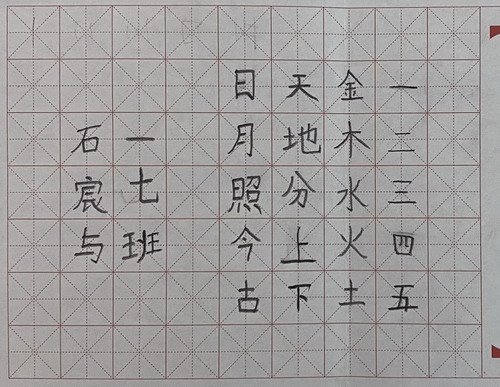 一二三四五
金木水火土
天地分上下
日月照今古
一七班
石宸与